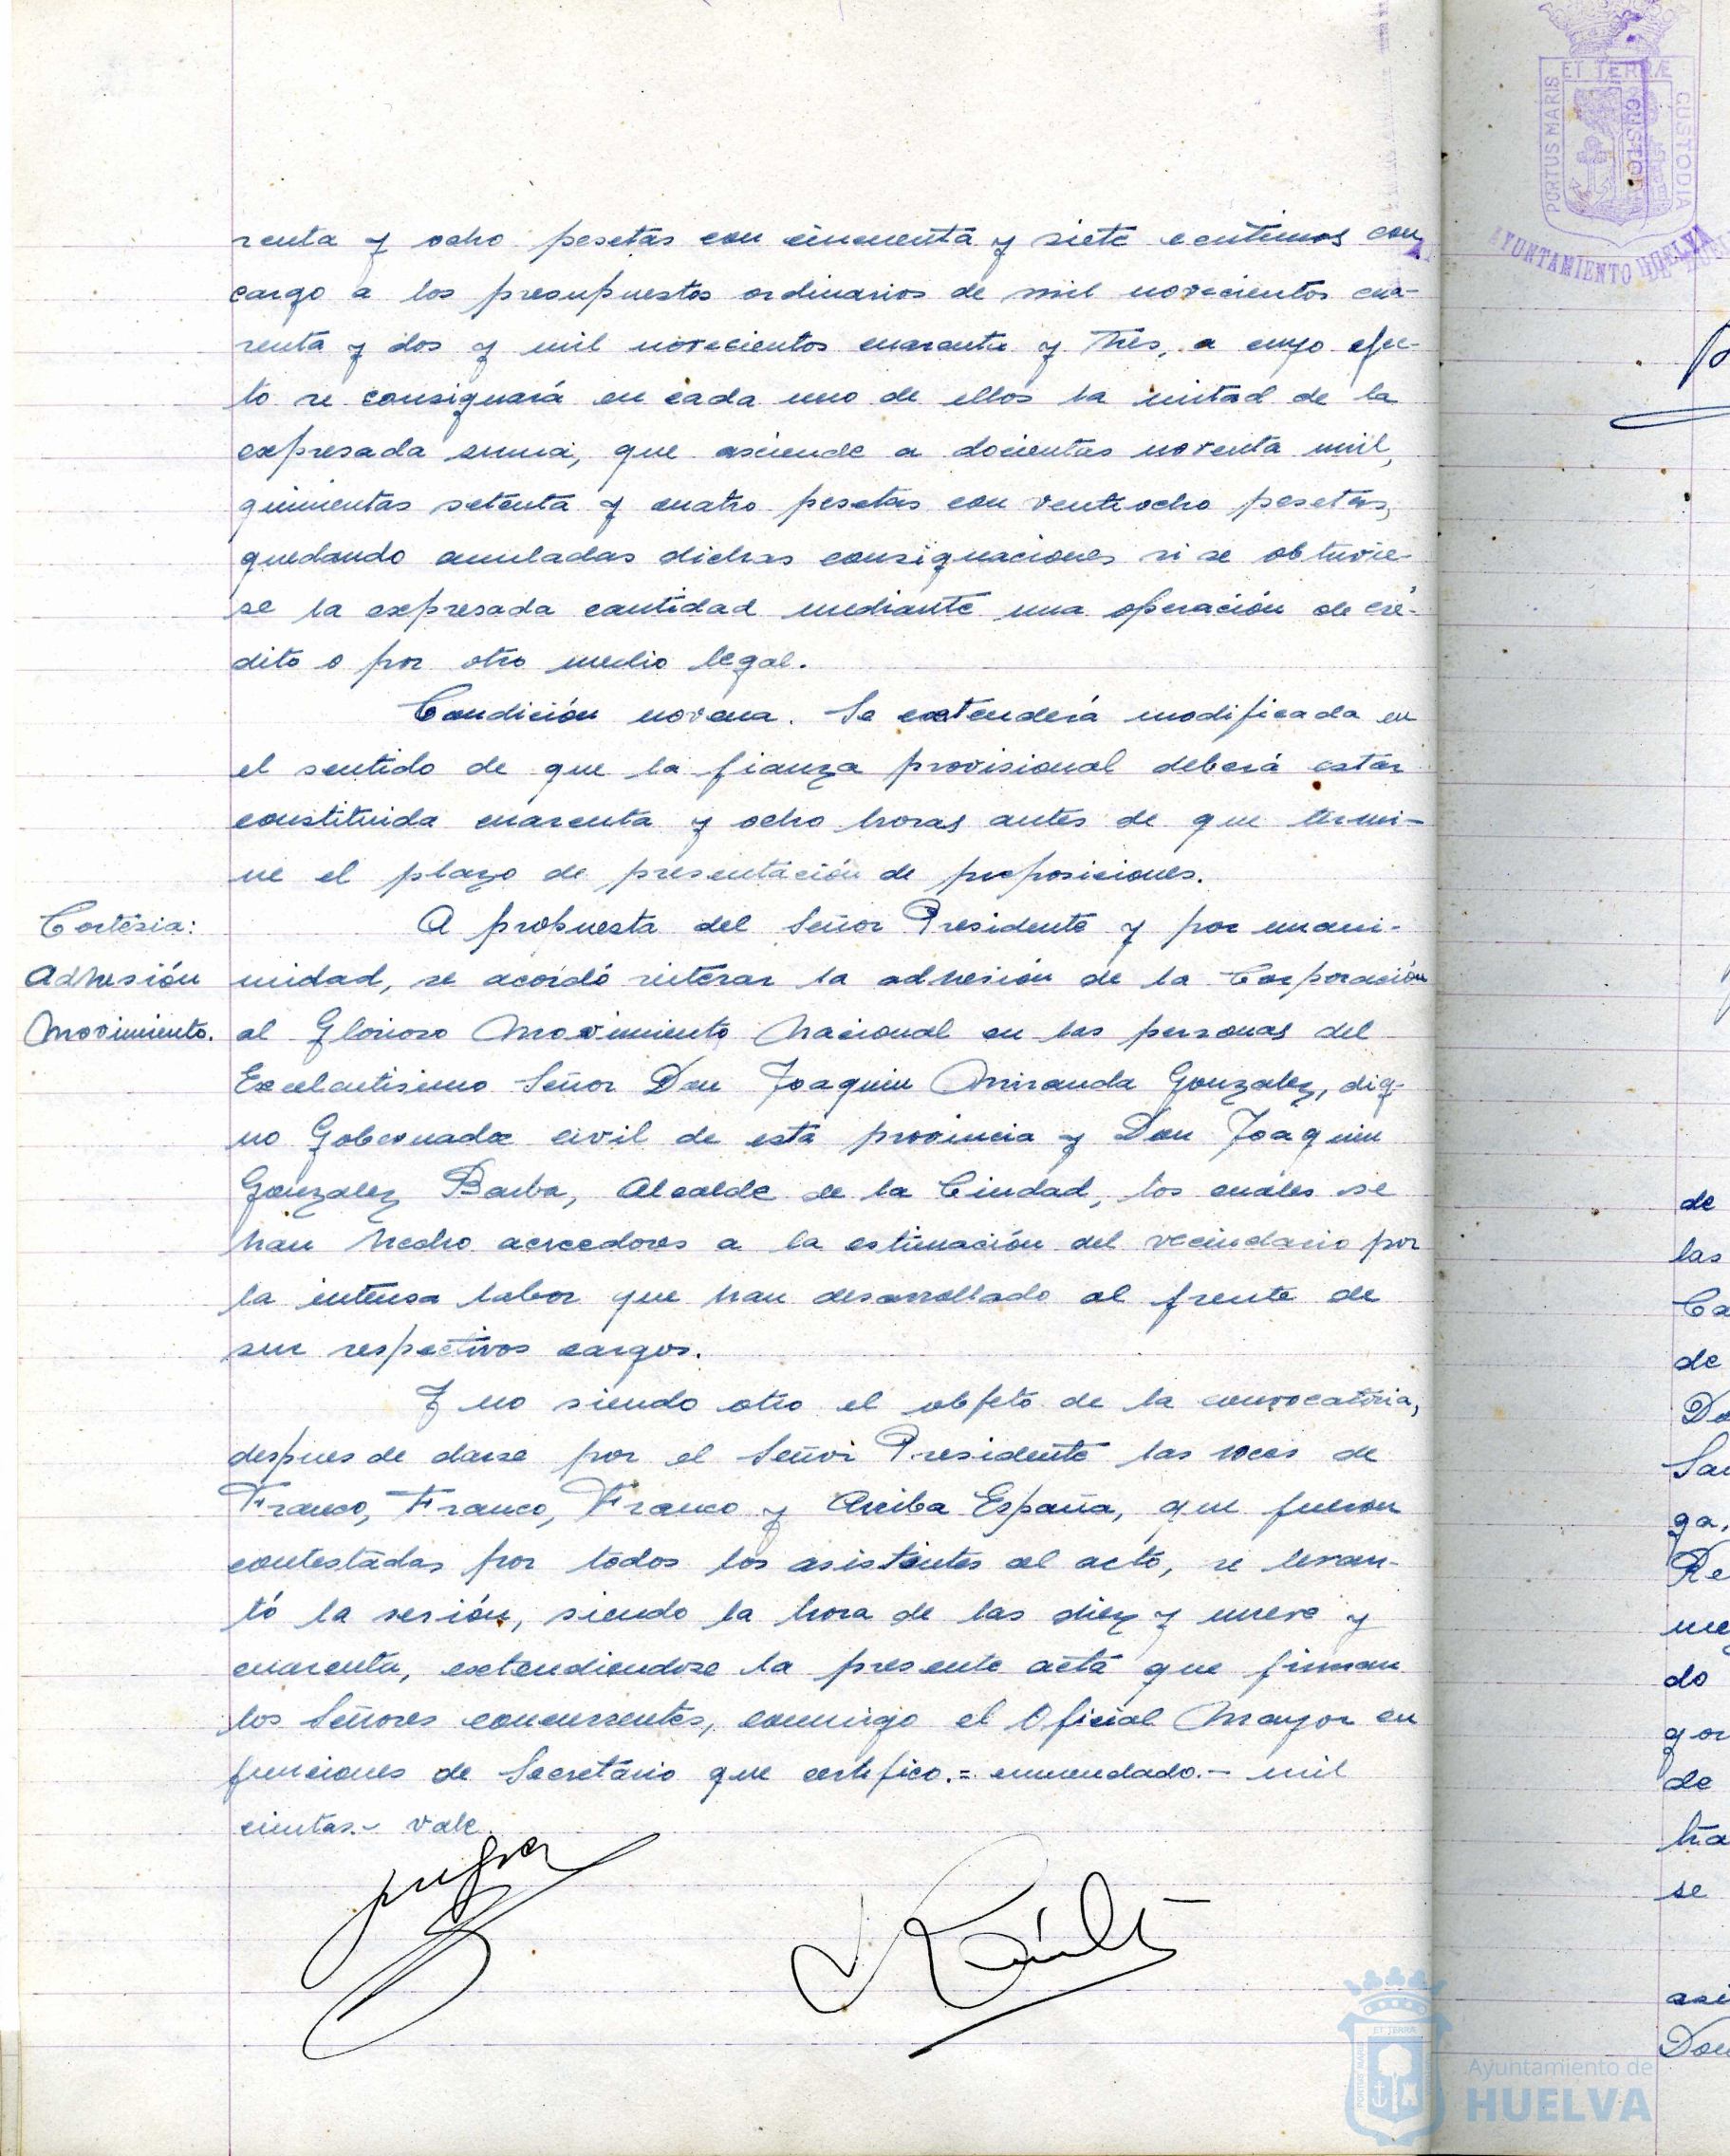 renta y ocho pesetas con cincuenta y siete centimos con
cargo a los presupuestos ordinarios de mil novecientos cua-
renta y dos y mil novecientos cuarenta y tres, a cuyo efec-
to se consignará en cada uno de ellos la mitad de la
expresada suma, que asciende a docientas noventa mil,
quinientas setenta y cuatro pesetas con ventiocho pesetas,
quedando anuladas dichas consignaciones si se obtuvie-
se la expresada cantidad mediante una operación de cré-
dito o por otro medio legal.
Condición novena. Se extenderá modificada en
el sentido de que la fianza provisional deberá estar
constituida cuarenta y ocho horas antes de que termi-
ne el plazo de presentación de proposiciones.
Cortesia:
Adhesión
Movimiento.
A propuesta del Señor Presidente y por unani-
midad, se acordó riterar la adhesión de la Corporación
al Glorioso Movimiento Nacional en las personas del
Excelentisimo Señor Don Joaquin Miranda Gonzalez, dig-
no Gobernador civil de esta provincia y Don Joaquin
Gonzalez Barba, Alcalde de la Ciudad, los cuáles se
han hecho acreedores a la estimación del vecindario por
la intensa labor que han desarrollado al frente de
sus respectivos cargos.
Y no siendo otro el objeto de la convocatoria,
despues de darse por el Señor Presidente las voces de
Franco, Franco, Franco y Arriba España, que fueron
contestadas por todos los asistentes al acto, se levan-
tó la sesión, siendo la hora de las diez y nueve y
cuarenta, extendiendose la presente acta que firman
los Señores concurrentes, conmigo el Oficial Mayor en
funciones de Secretario que certifico.= enmendado.- mil
cientas.- vale.
PORTUS MARIS ET TERRÆ CUSTODIA
AYUNTAMIENTO HUELVA
de
las
Ca
de
Do
Sau
ga,
Re
me
do
gor
de
tra
se
asi
Don
Ayuntamiento de
HUELVA